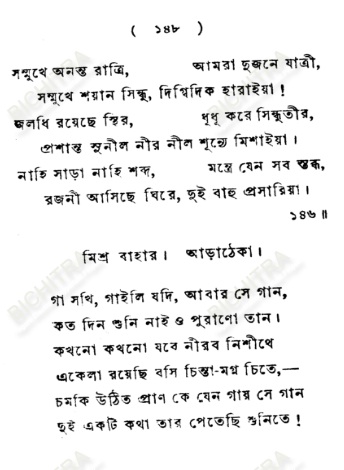 ( ১৪৮ )
সম্মুখে অনন্ত রাত্রি, আমরা দুজনে যাত্রী,
সম্মুখে শয়ান সিন্ধু, দিগ্বিদিক হারাইয়া !
জলধি রয়েছে স্থির, ধূধূ করে সিন্ধুতীর,
প্রশান্ত সুনীল নীর নীল শূন্যে মিশাইয়া ।
নাহি সাড়া নাহি শব্দ, মন্ত্রে যেন সব স্তব্ধ,
রজনী আসিছে ঘিরে, দুই বাহু প্রসারিয়া ।
১৪৬ ॥
মিশ্র বাহার । আড়াঠেকা ।
গা সখি, গাইলি যদি, আবার সে গান,
কত দিন শুনি নাই ও পুরাণো তান ।
কখনো কখনো যবে নীরব নিশীথে
একেলা রয়েছি বসি চিন্তা-মগ্ন চিতে,—
চমকি উঠিত প্রাণ কে যেন গায় সে গান
দুই একটি কথা তার পেতেছি শুনিতে !
BICHITRA
BICHITRA
BICHITRA
BICHITRA